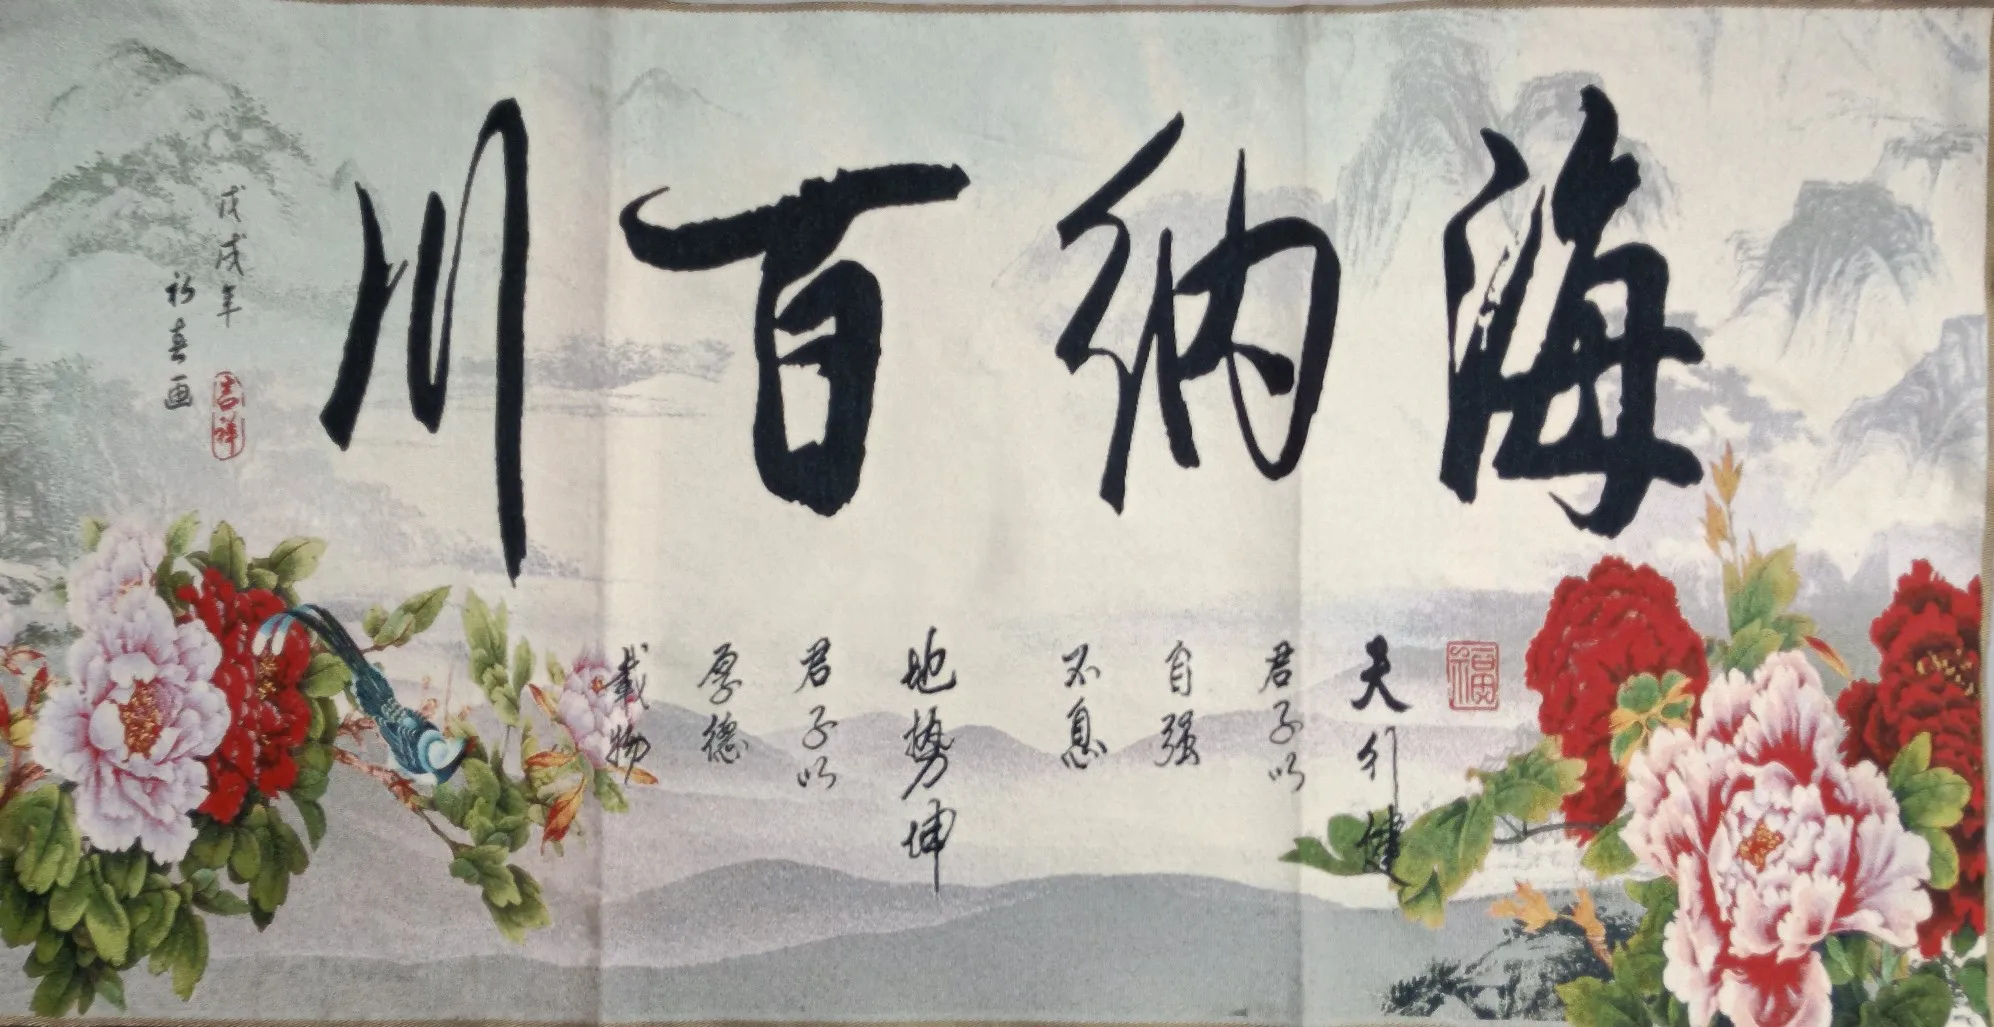 海纳百川
福
天行健
君子以
自强
不息
地势坤
君子以
厚德
载物
戊戌年
初春画
吉祥